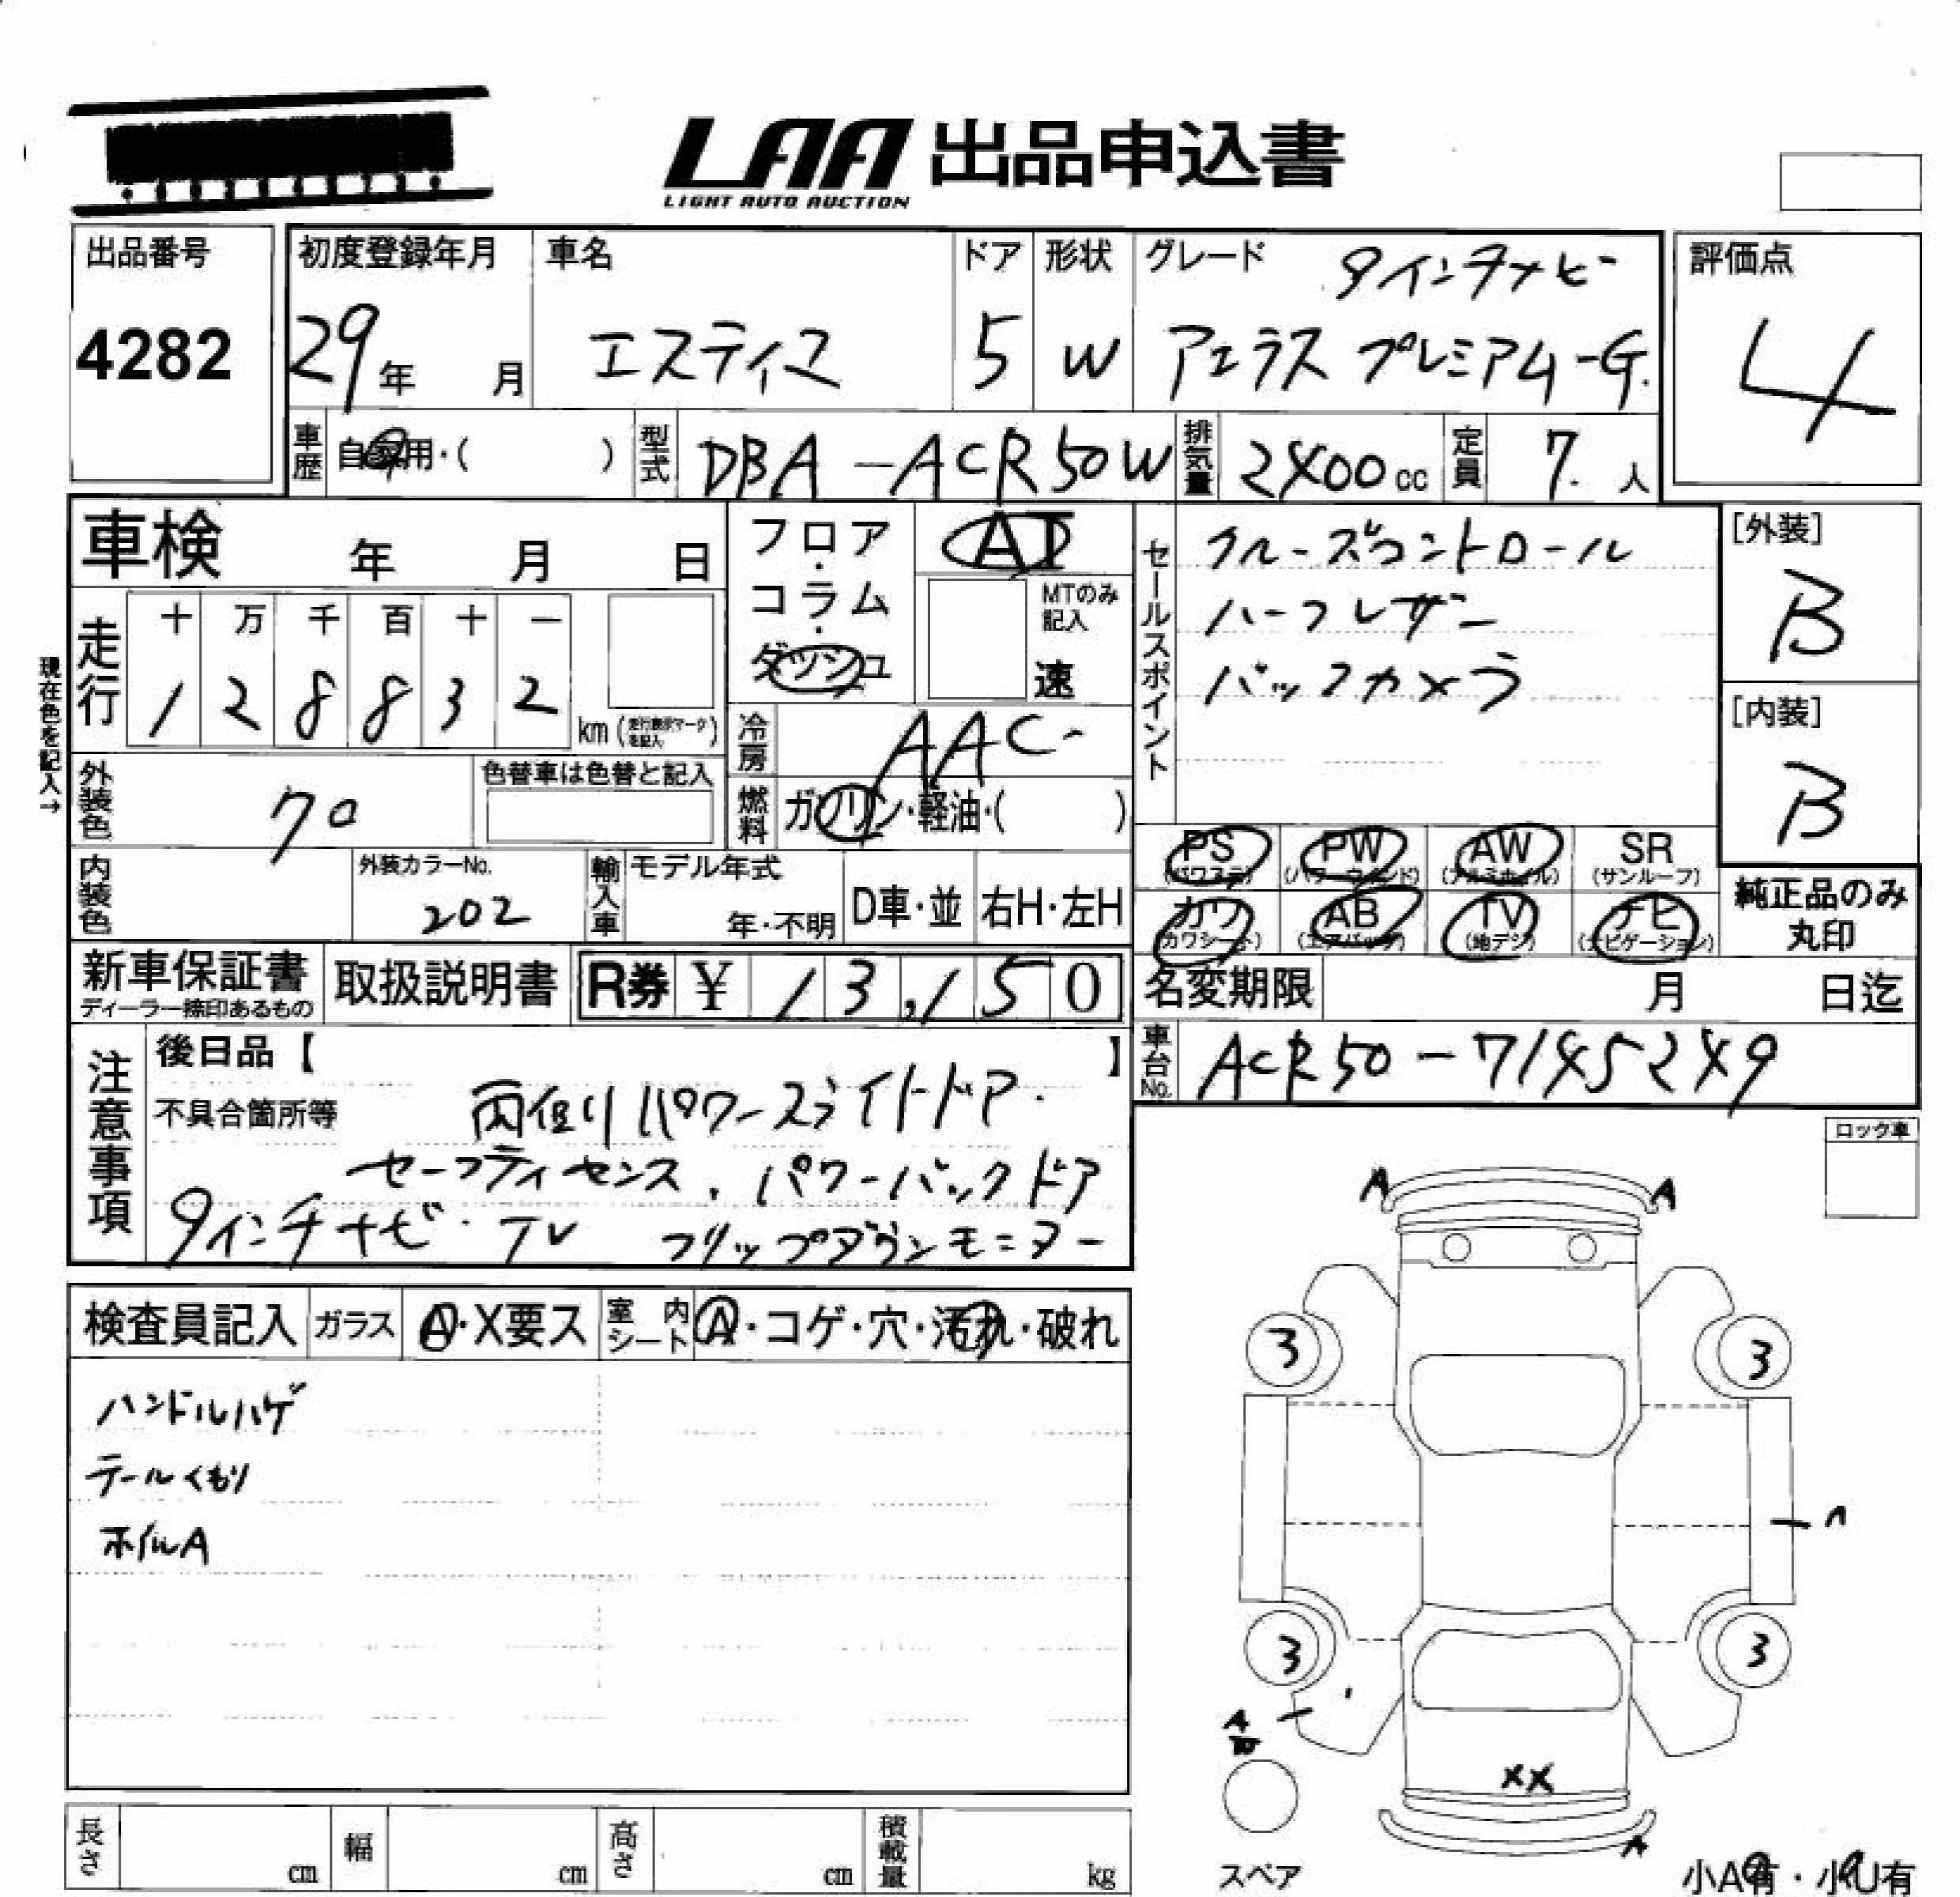 LAA 出品申込書
LIGHT AUTO AUCTION
出品番号
4282
初度登録年月
29年 月
車名
エスティマ
ドア
5
形状
W
グレード 9インチナビ
アエラス プレミアム-G.
評価点
4
車歴 自家用・( )
型式 DBA-ACR50W
排気量 2400 cc
定員 7. 人
車検 年 月 日
フロア・コラム・ダッシュ
AT
MTのみ記入
速
セールスポイント
クルーズコントロール
ハーフレザー
バックカメラ
[外装]
B
[内装]
B
現在色を記入→
走行
十 万 千 百 十 一
1 2 8 8 3 2
km (走行表示マークを記入)
冷房 AAC
燃料 ガソリン・軽油・( )
外装色 クロ
色替車は色替と記入
内装色
外装カラーNo.
202
輸入車
モデル年式
年・不明
D車・並
右H・左H
PS (パワステ)
PW (パワーウィンド)
AW (アルミホイル)
SR (サンルーフ)
カワ (カワシート)
AB (エアバッグ)
TV (地デジ)
ナビ (ナビゲーション)
純正品のみ
丸印
新車保証書
ディーラー捺印あるもの
取扱説明書
R券 ¥ 13,150
名変期限 月 日迄
車台No. ACR50-7145249
注意事項
後日品【 】
不具合箇所等 両側パワースライドドア.
セーフティセンス. パワーバックドア
9インチナビ・TV フリップダウンモニター
ロック車
検査員記入
ガラス A・X要ス
室内シート A・コゲ・穴・汚れ・破れ
ハンドルハゲ
テールくもり
ホイルA
A A
3 3
3 3
XX
A
スペア
小A有・小U有
長さ cm
幅 cm
高さ cm
積載量 kg